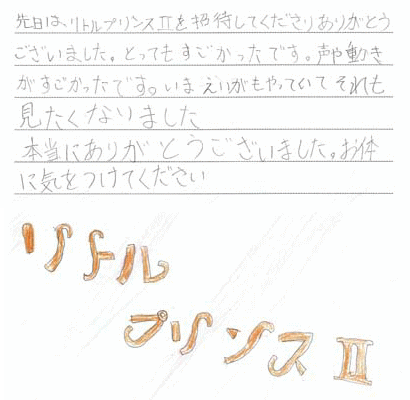 先日は、リトルプリンスⅡを招待してくださりありがとう
ございました。とってもすごかったです。声や動き
がすごかったです。いまえいがもやっていてそれも
見たくなりました
本当にありがとうございました。お体
に気をつけてください
リトル
プリンスⅡ